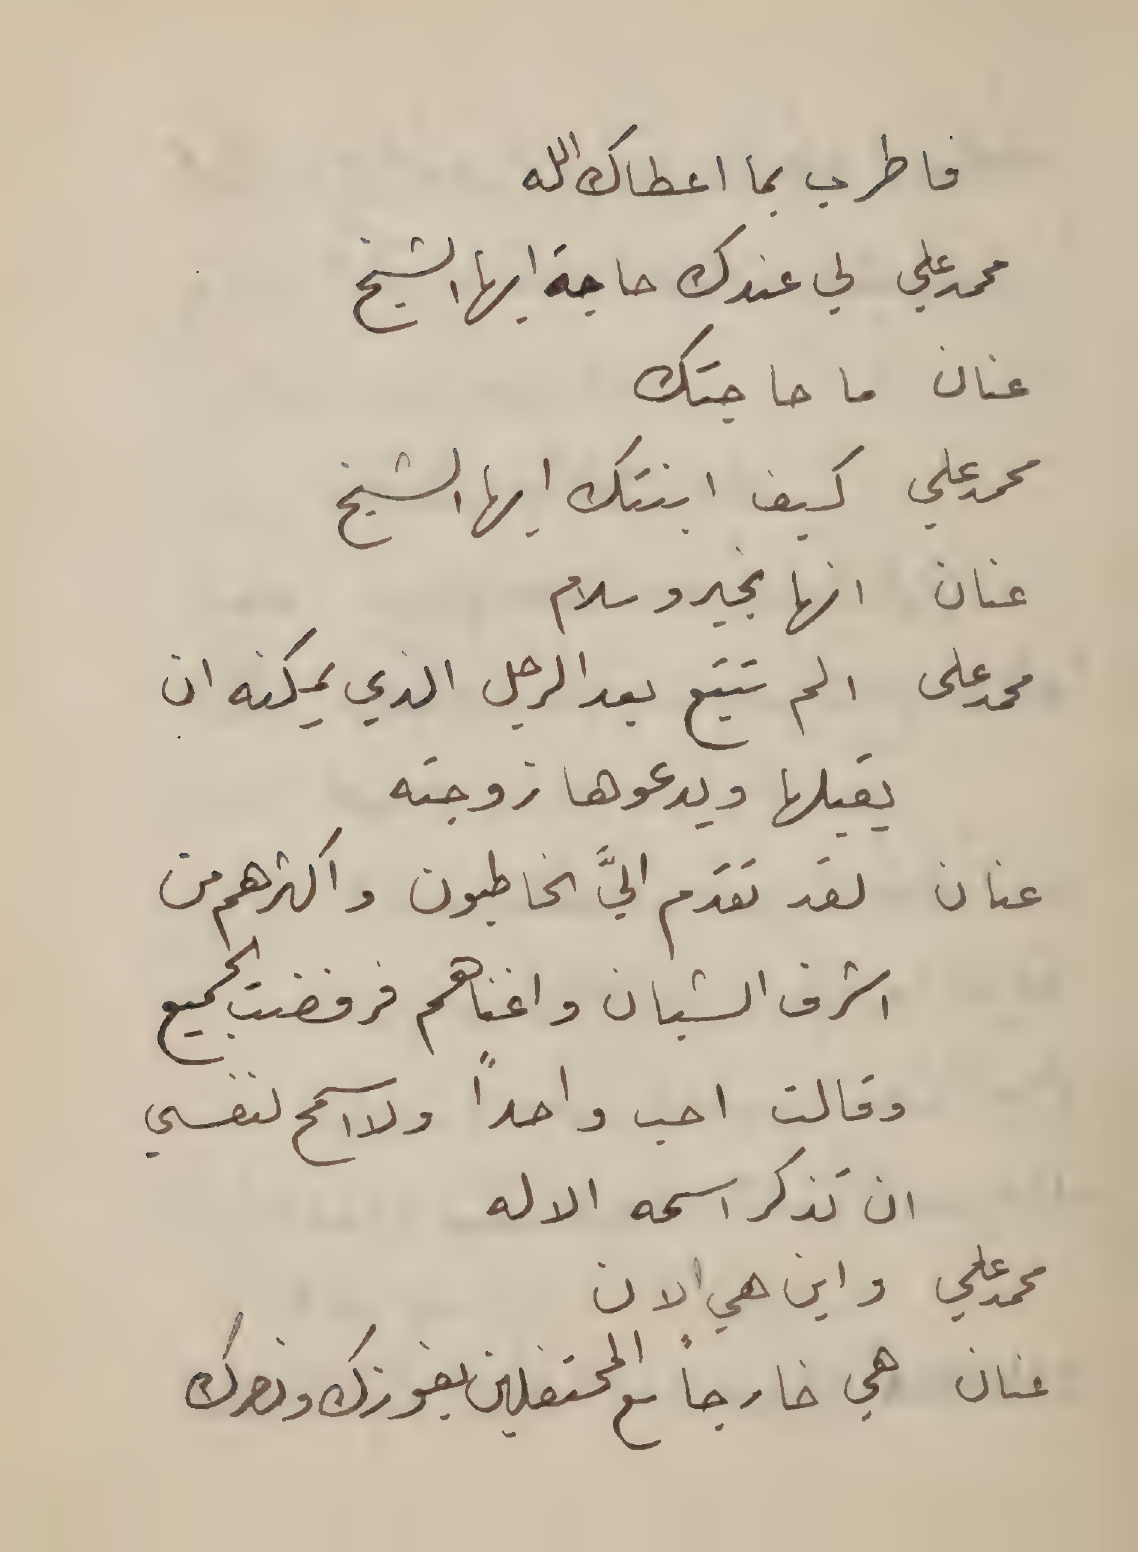 فاطرب بما اعطاك الله
محمد علي لي عندك حاجة ايها الشيخ
عنان ما حاجتك
محمد علي كيف ابنتك ايها الشيخ
عنان انها بخير وسلام
محمد على الم تتبع بعد الرجل الذي يمكنه ان
يقبلها ويدعوها زوجته
عنان لقد تقدم اليَّ الخاطبون واكثرهم من
اشرف الشبان واغناهم فرفضت الجميع
وقالت احب واحداً ولا اسمح لنفسي
ان تذكر اسمه الا له
محمد علي واين هي الان
عنان هي خارجاً مع المحتفلين بفوزك ونصرك